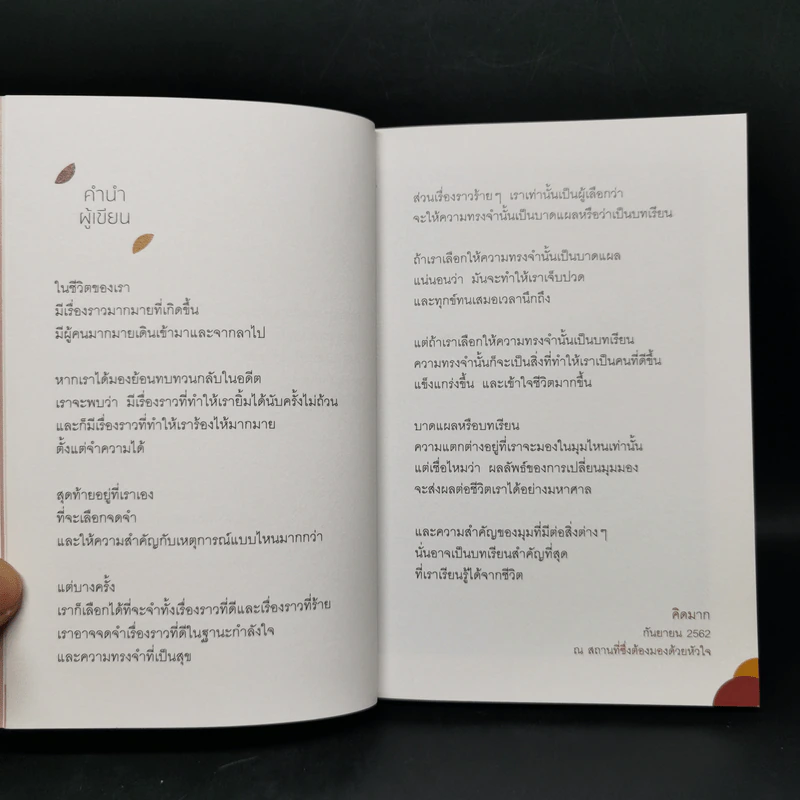 คำนำ
ผู้เขียน
ในชีวิตของเรา
มีเรื่องราวมากมายที่เกิดขึ้น
มีผู้คนมากมายเดินเข้ามาและจากลาไป
หากเราได้มองย้อนทบทวนกลับในอดีต
เราจะพบว่า มีเรื่องราวที่ทำให้เรายิ้มได้นับครั้งไม่ถ้วน
และก็มีเรื่องราวที่ทำให้เราร้องไห้มากมาย
ตั้งแต่จำความได้
สุดท้ายอยู่ที่เราเอง
ที่จะเลือกจดจำ
และให้ความสำคัญกับเหตุการณ์แบบไหนมากกว่า
แต่บางครั้ง
เราก็เลือกได้ที่จะจำทั้งเรื่องราวที่ดีและเรื่องราวที่ร้าย
เราอาจจดจำเรื่องราวที่ดีในฐานะกำลังใจ
และความทรงจำที่เป็นสุข
ส่วนเรื่องราวร้ายๆ เราเท่านั้นเป็นผู้เลือกว่า
จะให้ความทรงจำนั้นเป็นบาดแผลหรือว่าเป็นบทเรียน
ถ้าเราเลือกให้ความทรงจำนั้นเป็นบาดแผล
แน่นอนว่า มันจะทำให้เราเจ็บปวด
และทุกข์ทนเสมอเวลานึกถึง
แต่ถ้าเราเลือกให้ความทรงจำนั้นเป็นบทเรียน
ความทรงจำนั้นก็จะเป็นสิ่งที่ทำให้เราเป็นคนที่ดีขึ้น
แข็งแกร่งขึ้น และเข้าใจชีวิตมากขึ้น
บาดแผลหรือบทเรียน
ความแตกต่างอยู่ที่เราจะมองในมุมไหนเท่านั้น
แต่เชื่อไหมว่า ผลลัพธ์ของการเปลี่ยนมุมมอง
จะส่งผลต่อชีวิตเราได้อย่างมหาศาล
และความสำคัญของมุมที่มีต่อสิ่งต่างๆ
นั่นอาจเป็นบทเรียนสำคัญที่สุด
ที่เราเรียนรู้ได้จากชีวิต
คิดมาก
กันยายน 2562
ณ สถานที่ซึ่งต้องมองด้วยหัวใจ